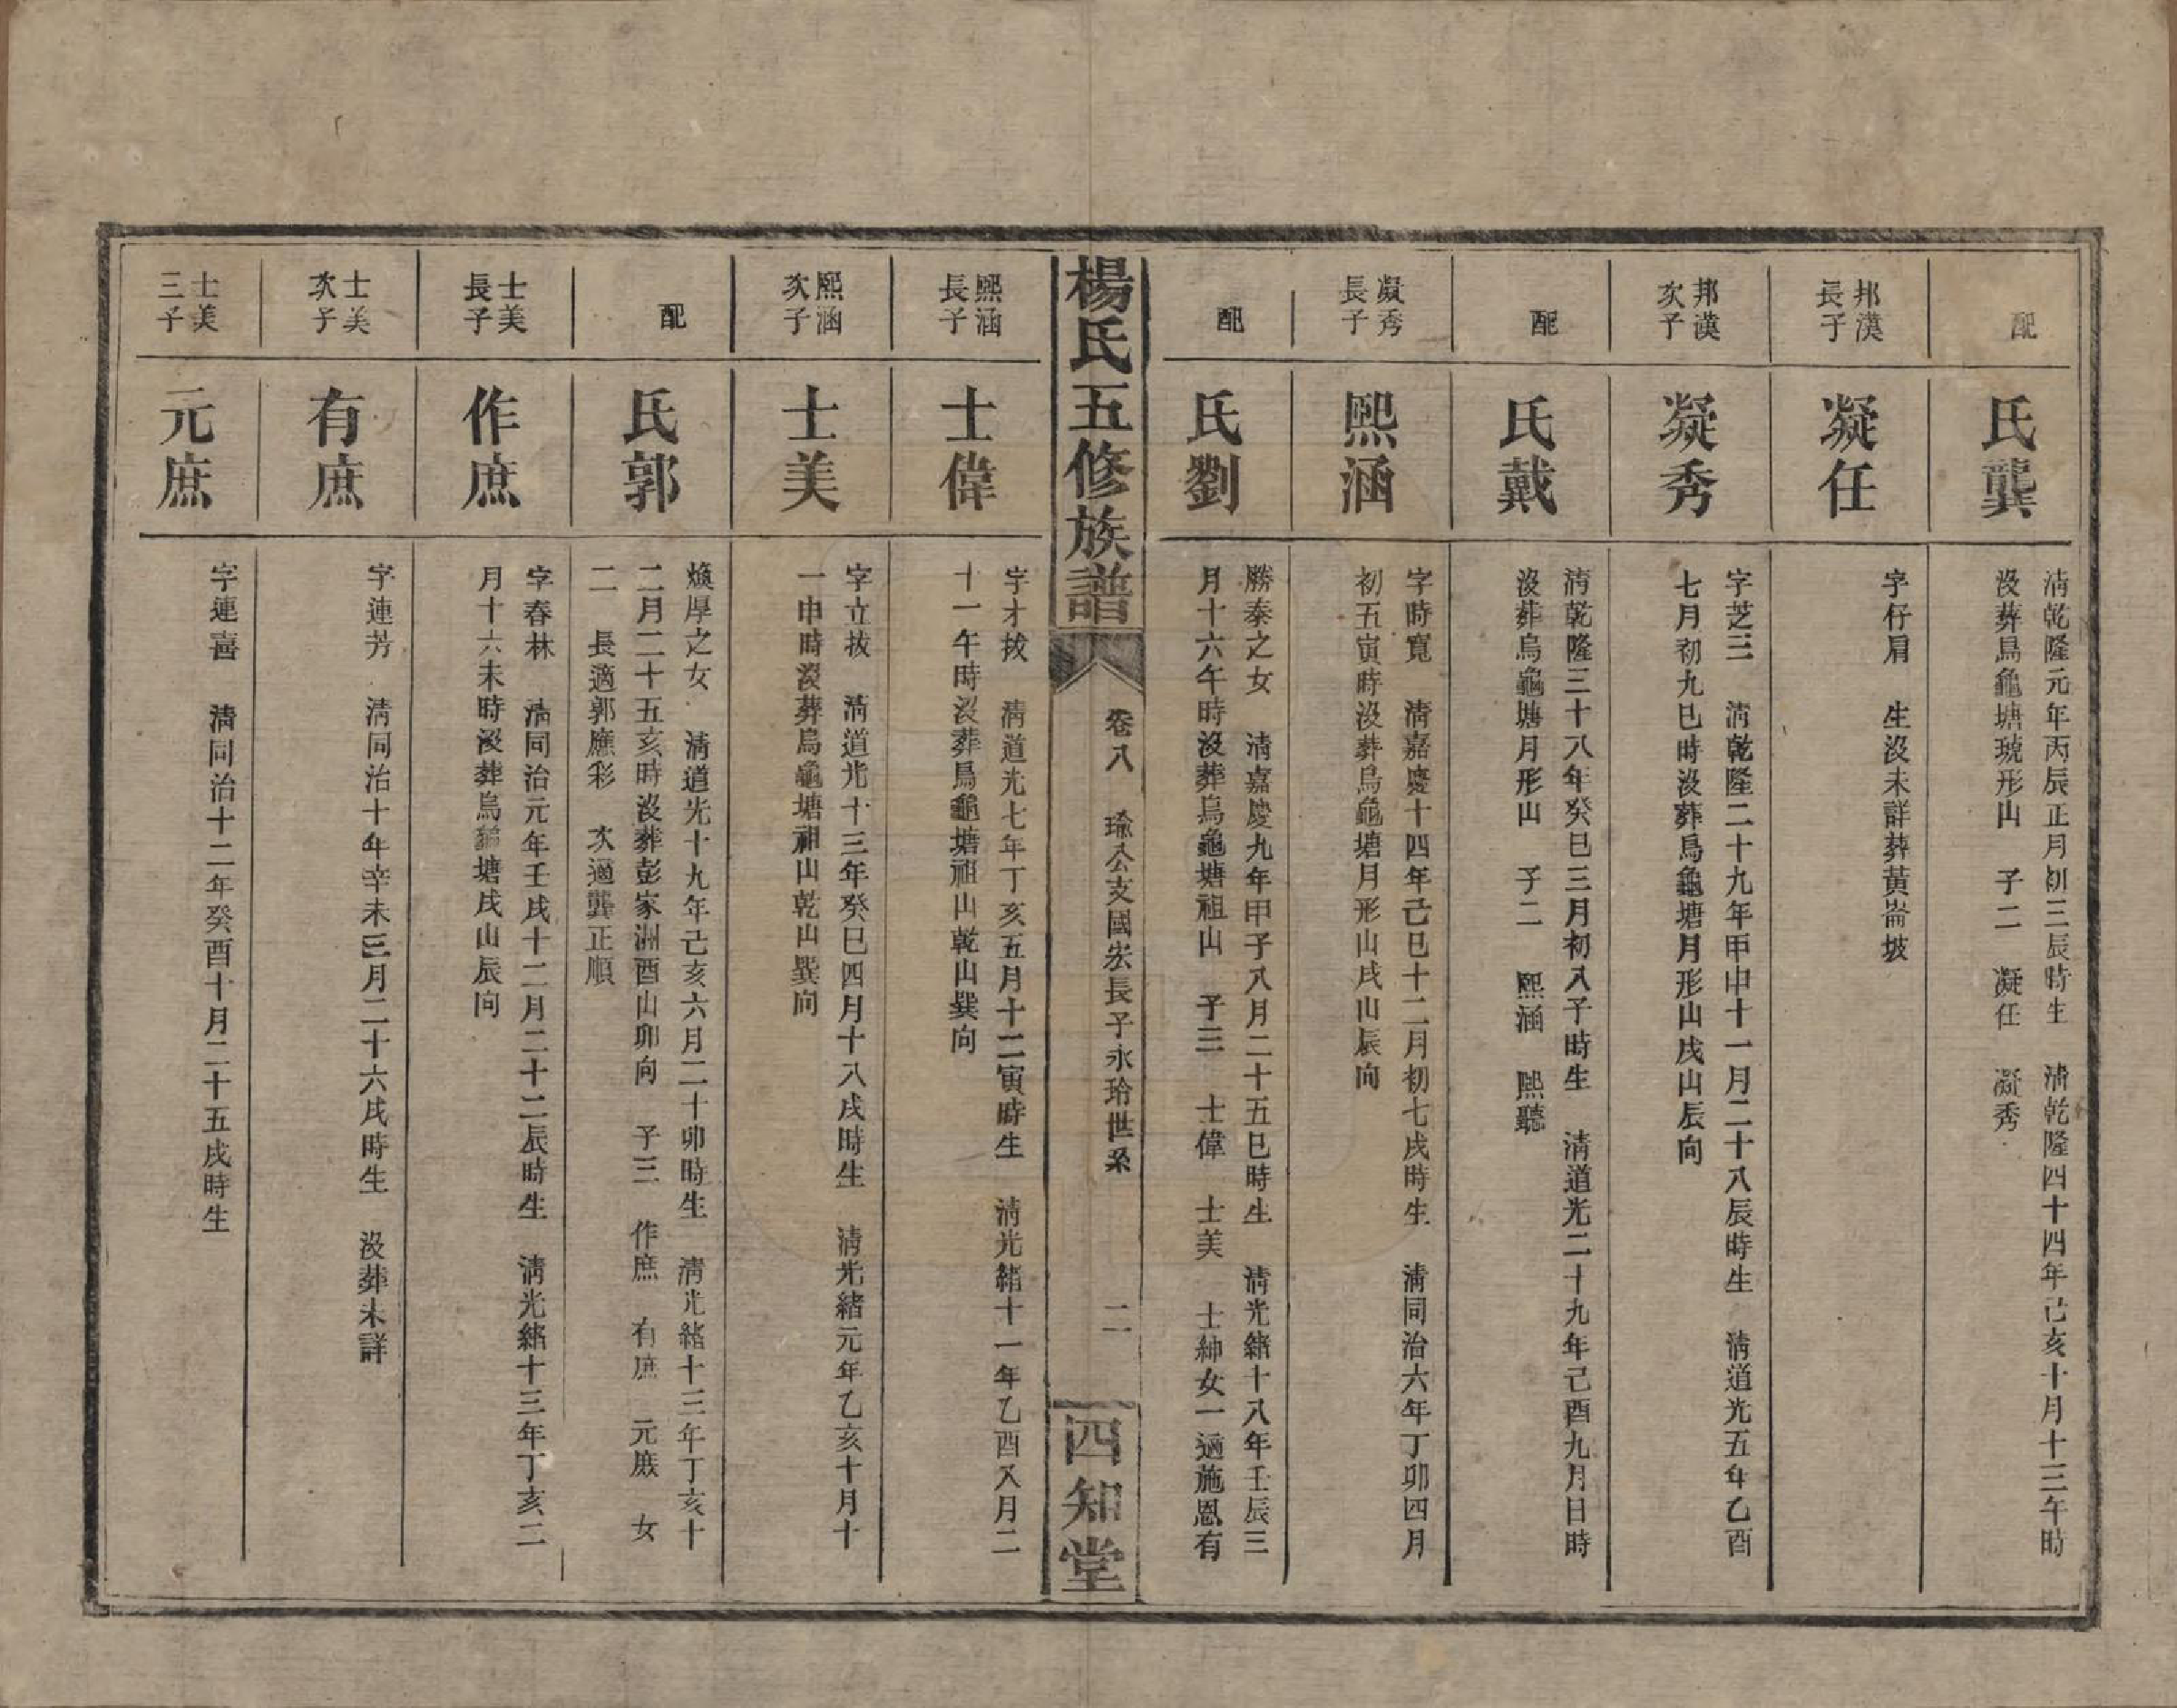 配
氏龔
清乾隆元年丙辰正月初三辰時生　清乾隆四十四年己亥十月十三午時
沒葬烏龜塘琥形山　子二　凝任　凝秀
邦漢
長子
凝任
字仔肩　生沒未詳葬黃崙坡
邦漢
次子
凝秀
字芝三　清乾隆二十九年甲申十一月二十八辰時生　清道光五年乙酉
七月初九巳時沒葬烏龜塘月形山戌山辰向
配
氏戴
清乾隆三十八年癸巳三月初八子時生　清道光二十九年己酉九月日時
沒葬烏龜塘月形山　子二　熙涵　熙聽
凝秀
長子
熙涵
字時寬　清嘉慶十四年己巳十二月初七戌時生　清同治六年丁卯四月
初五寅時沒葬烏龜塘月形山戌山辰向
配
氏劉
勝泰之女　清嘉慶九年甲子八月二十五巳時生　清光緒十八年壬辰三
月十六午時沒葬烏龜塘祖山　子三　士偉　士美　士紳女一適施恩有
楊氏五修族譜
卷八　瑜公支國宏長子永玲世系　二
四知堂
熙涵
長子
士偉
字才拔　清道光七年丁亥五月十二寅時生　清光緒十一年乙酉八月二
十一午時沒葬烏龜塘祖山乾山巽向
熙涵
次子
士美
字立拔　清道光十三年癸巳四月十八戌時生　清光緒元年乙亥十月十
一申時沒葬烏龜塘祖山乾山巽向
配
氏郭
煥厚之女　清道光十九年己亥六月二十卯時生　清光緒十三年丁亥十
二月二十五亥時沒葬彭家洲酉山卯向　子三　作庶　有庶　元庶　女
二　長適郭應彩　次適龔正順
士美
長子
作庶
字春林　清同治元年壬戌十二月二十二辰時生　清光緒十三年丁亥二
月十六未時沒葬烏龜塘戌山辰向
士美
次子
有庶
字連芳　清同治十年辛未三月二十六戌時生　沒葬未詳
士美
三子
元庶
字連喜　清同治十二年癸酉十月二十五戌時生